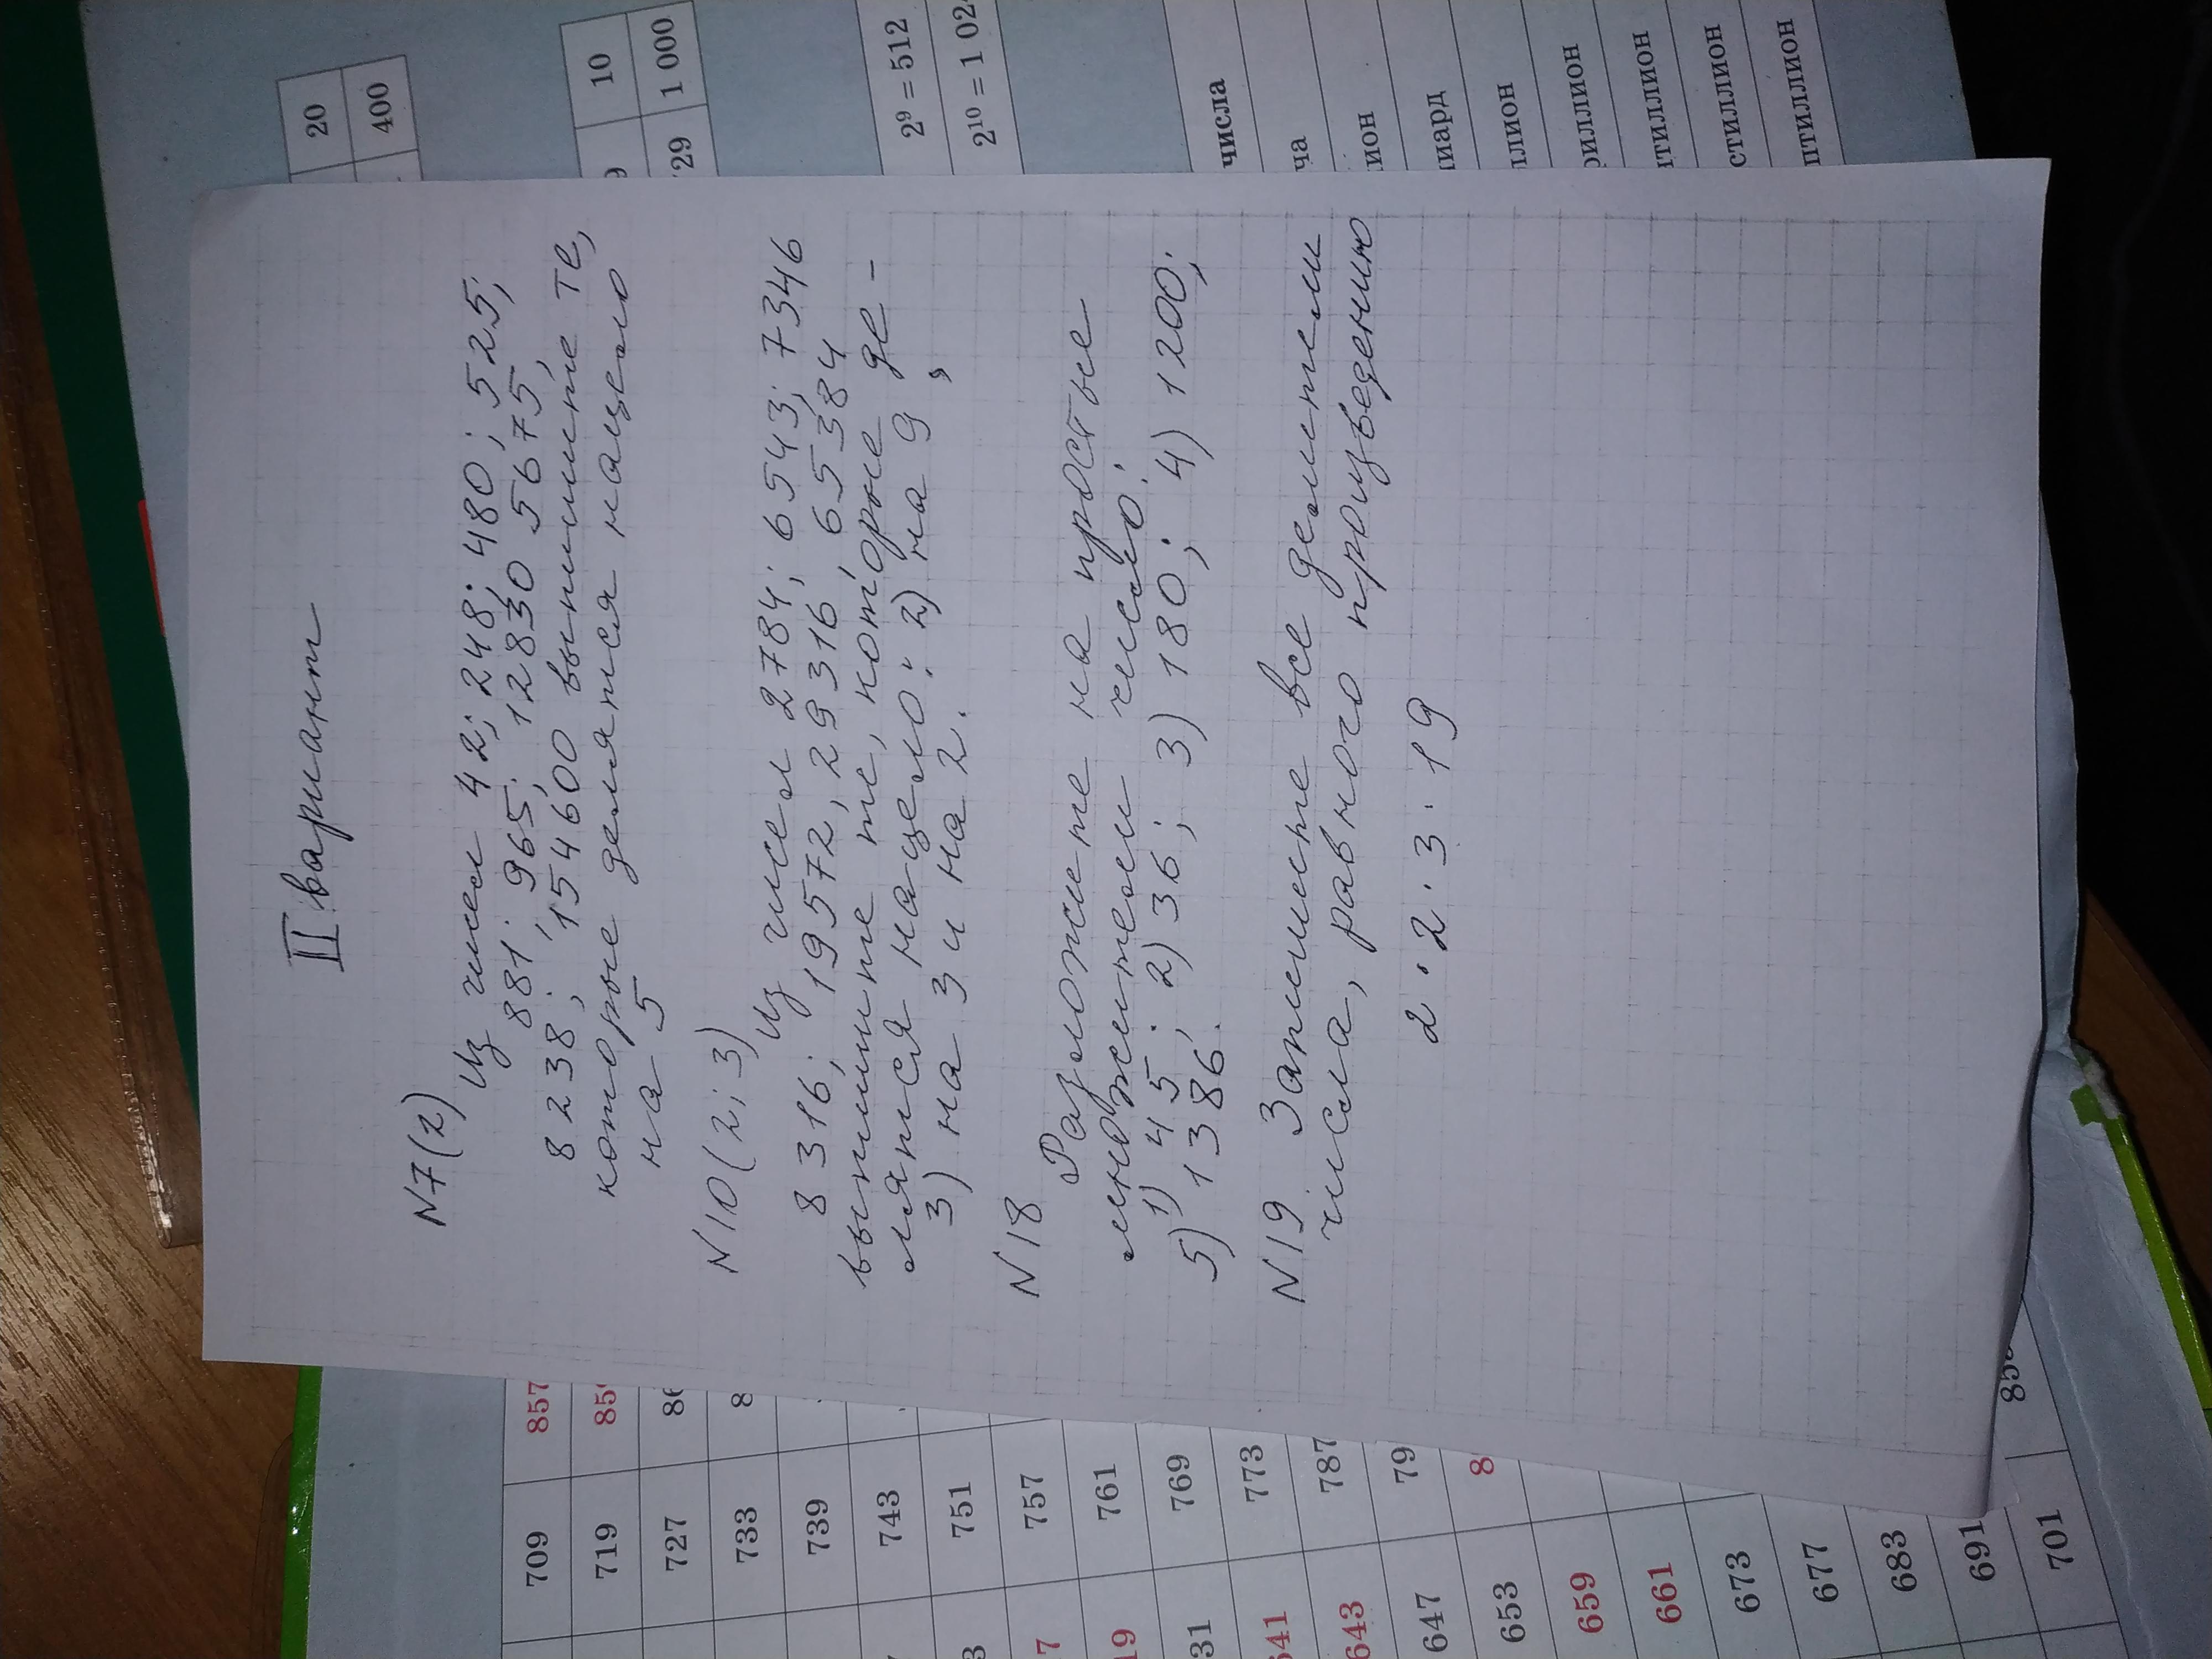 II вариант
N7(2)
Из чисел 42; 248; 480; 525;
881; 965; 12830 5675,
8238; 154600 выпишите те,
которые делятся нацело
на 5
N10(2;3)
Из чисел 2784; 6543; 7346
8316; 19572, 29316, 65384
выпишите те, которые де-
лятся нацело: 2) на 9,
3) на 3 и на 2.
N18
Разложите на простые
множители число:
1) 45; 2) 36; 3) 180; 4) 1200;
5) 1386.
N19 Запишите все делители
числа, равного произведению
2·2·3·19
20
400
10
1 000
9
729
2⁹ = 512
2¹⁰ = 1 024
числа
857
709
719
727
733
739
743
751
757
761
769
773
787
647
653
659
661
673
677
683
691
701
643